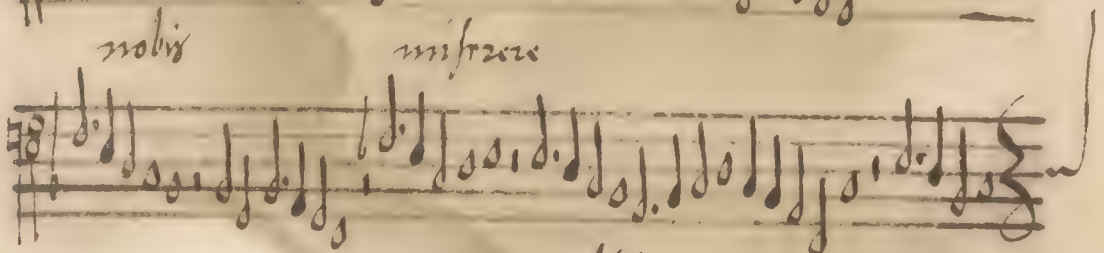 nobis miserere